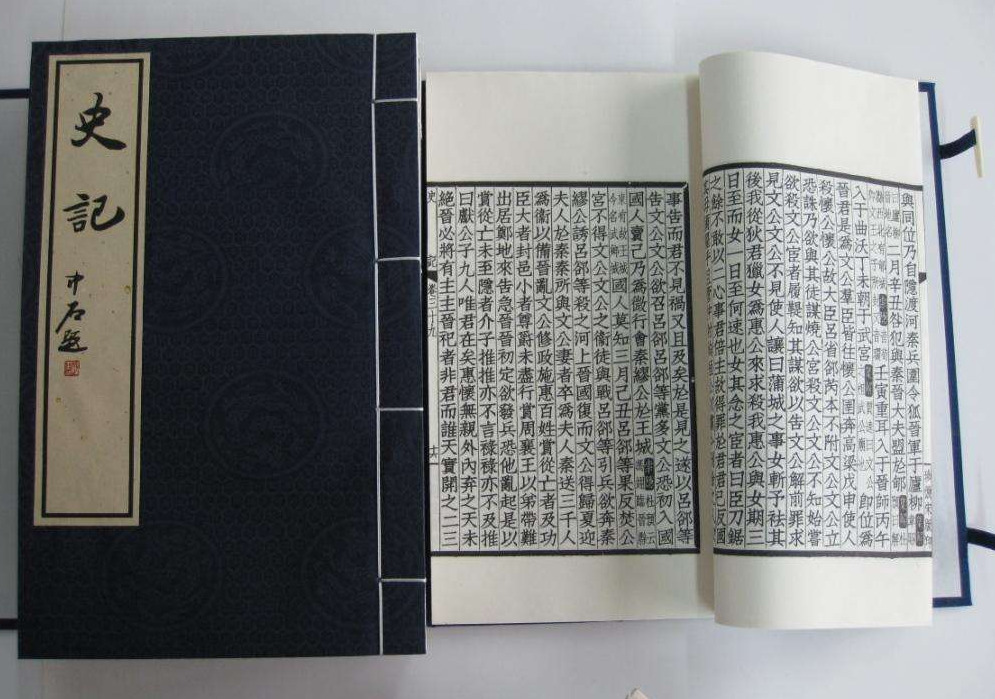 史記
中石題
與同位乃自隱渡河秦兵圍令狐晉軍于廬柳
二月辛丑咎犯與秦晉大夫盟於郇
壬寅重耳入于晉師丙午
入于曲沃丁未朝于武宮
即位爲
晉君是爲文公羣臣皆往懷公圉奔高梁戊申使人
殺懷公懷公故大臣呂省郤芮本不附文公文公立
恐誅乃欲與其徒謀燒公宮殺文公文公不知始嘗
欲殺文公宦者履鞮知其謀欲以告文公解前罪求
見文公文公不見使人讓曰蒲城之事女斬予袪其
後我從狄君獵女爲惠公來求殺我惠公與女期三
日至而女一日至何速也女其念之宦者曰臣刀鋸
之餘不敢以二心事君倍主故得罪於君君已反國
事告而君不見禍又且及矣於是見之遂以呂郤等
告文公文公欲召呂郤呂郤等黨多文公恐初入國
國人賣己乃爲微行會秦繆公於王城
國人莫知三月己丑呂郤等果反焚公
宮不得文公文公之衞徒與戰呂郤等引兵欲奔秦
繆公誘呂郤等殺之河上晉國復而文公得歸夏迎
夫人於秦秦所與文公妻者卒爲夫人秦送三千人
爲衞以備晉亂文公修政施惠百姓賞從亡者及功
臣大者封邑小者尊爵未盡行賞周襄王以弟帶難
出居鄭地來告急晉晉初定欲發兵恐他亂起是以
賞從亡未至隱者介子推推亦不言祿祿亦不及推
曰獻公子九人唯君在矣惠懷無親外內弃之天未
絕晉必將有主主晉祀者非君而誰天實開之二三
史記卷三十九